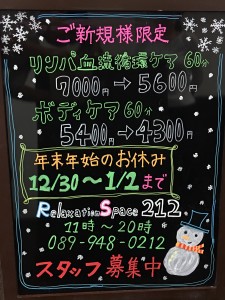 ご新規様限定
リンパ血流循環ケア 60分
7000円→5600円
ボディケア 60分
5400円→4300円
年末年始のお休み
12/30〜1/2まで
Relaxation Space 212
11時〜20時
089-948-0212
スタッフ募集中